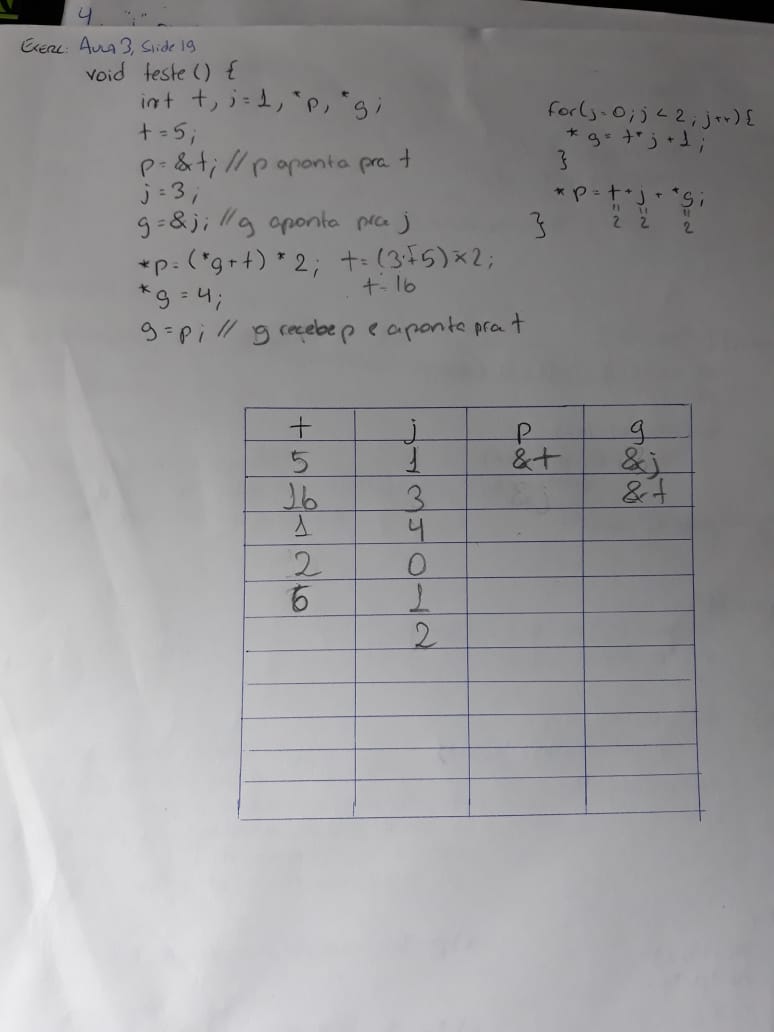 4
EXERC: Aula 3, Slide 19
void teste() {
int t, j=1, *p, *g;
t=5;
p=&t; // p aponta pra t
j=3;
g=&j; // g aponta pra j
*p=(*g+t) * 2; t=(3+5)×2;
t=16
*g=4;
g=p; // g recebe p e aponta pra t
for(j=0; j<2; j++){
*g=t*j+1;
}
*p=t+j+*g;
2 2 2
}
t j p g
5 1 &t &j
16 3 &t
1 4
2 0
6 1
2